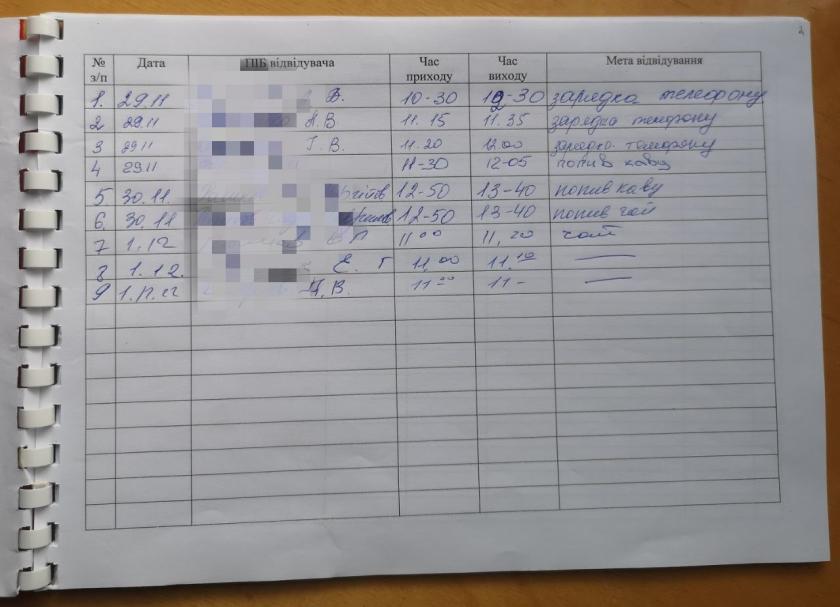 № з/п Дата ПІБ відвідувача Час приходу Час виходу Мета відвідування
1. 29.11 В. 10-30 12-30 зарядка телефону
2 29.11 А.В 11.15 11.35 зарядка телефону
3 29.11 Г.В. 11.20 12.00 зарядка телефону
4 29.11 11-30 12-05 попив каву
5 30.11. 12-50 13-40 попив каву
6. 30.11 12-50 13-40 попив чай
7 1.12 11 00 11,20 чай
8 1.12. Е. Г 11,00 11.10 —
9 В. 11 11- —